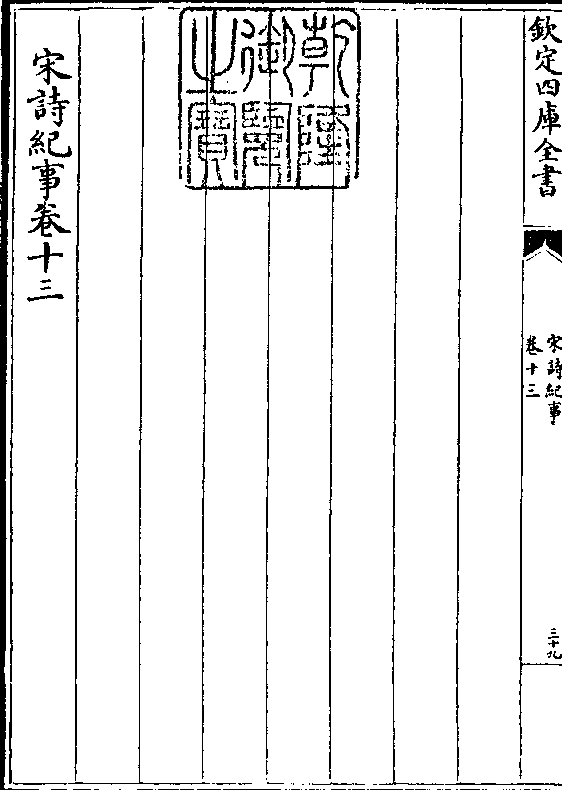 欽定四庫全書
宋詩紀事
卷十三
三十九
乾隆
御覽
之寶
宋詩紀事卷十三